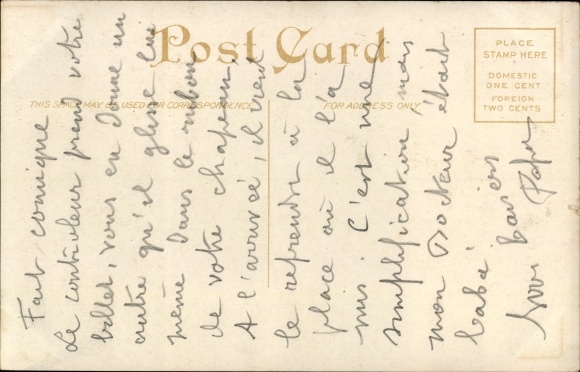 Post Card
THIS SPACE MAY BE USED FOR CORRESPONDENCE
FOR ADDRESS ONLY
PLACE
STAMP HERE
DOMESTIC
ONE CENT
FOREIGN
TWO CENTS
Fait comique
Le controleur prend votre
billet, vous en donne un
autre qu'il glisse lui
même dans le ruban
de votre chapeau.
A l'arrivée, il vient
le reprendre à la
place où il l'a
mis. C'est une
simplification, mais
mon Docteur était
baba.
1000 baisers
Papa